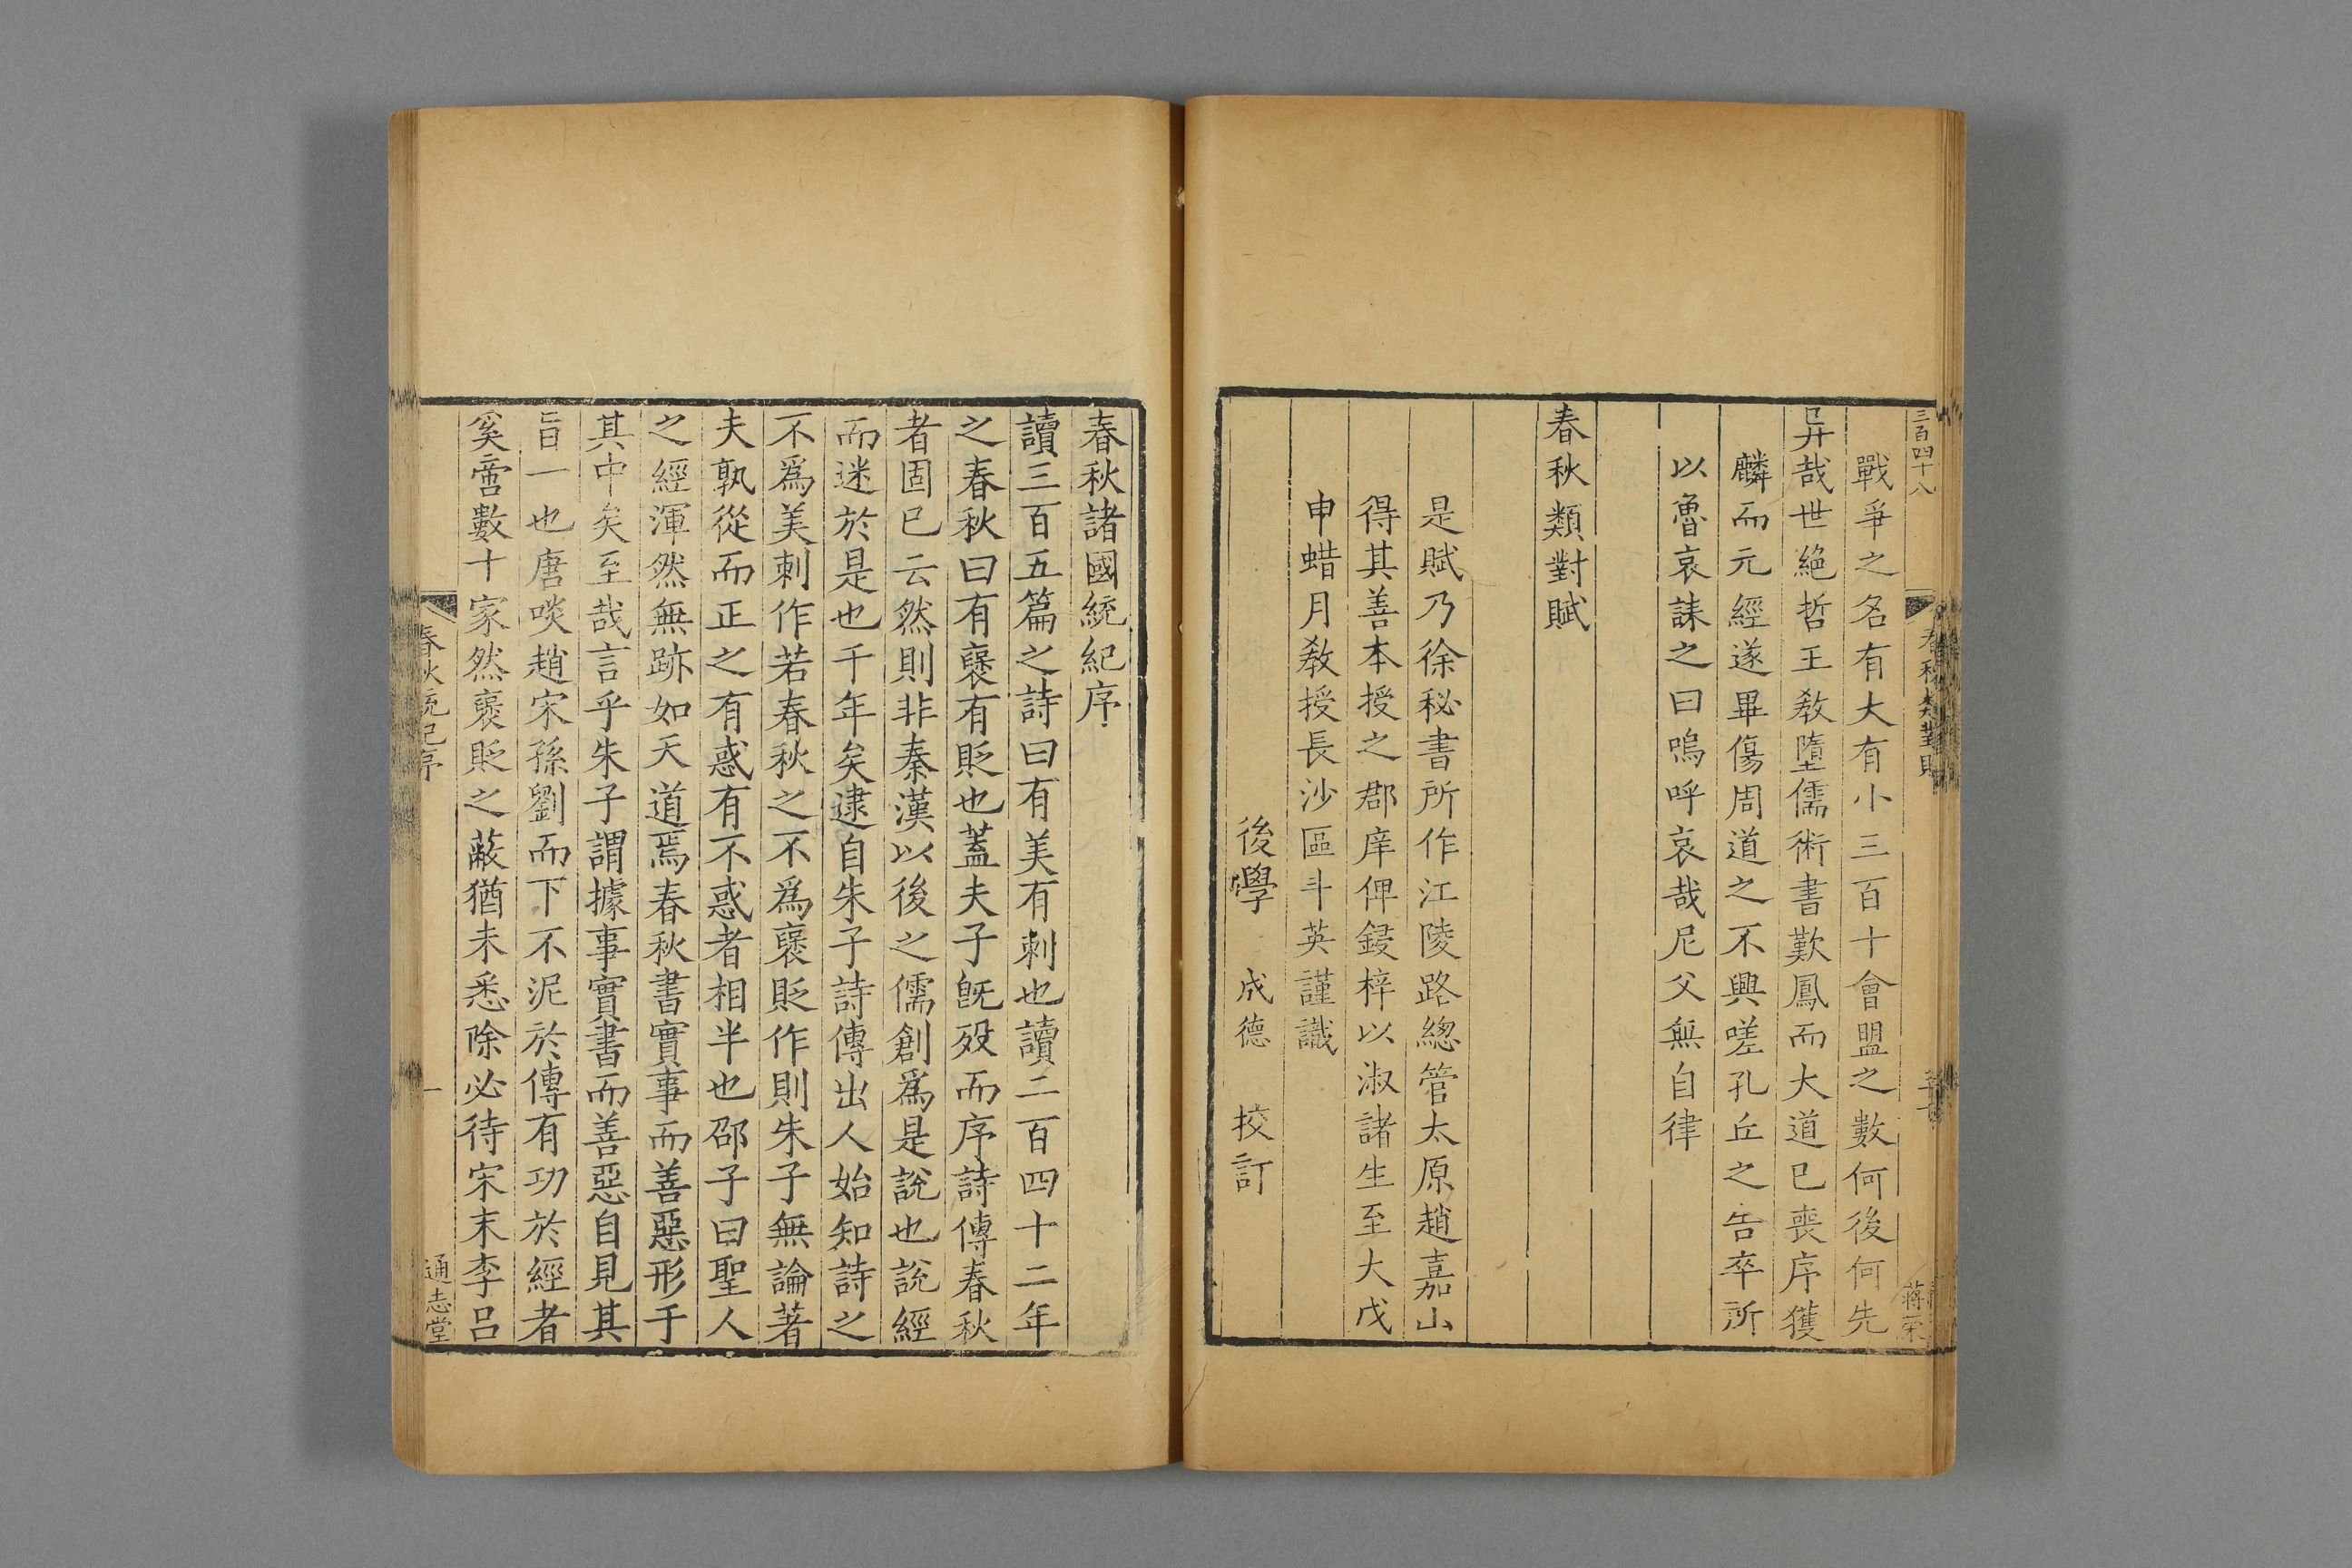 三百四十八
春秋類對賦
蔣榮
戰爭之名有大有小三百十會盟之數何後何先
异哉世絕哲王敎墮儒術書歎鳳而大道已喪序獲
麟而元經遂畢傷周道之不興嗟孔丘之告卒所
以魯哀誄之曰嗚呼哀哉尼父無自律
春秋類對賦
是賦乃徐秘書所作江陵路總管太原趙嘉山
得其善本授之郡庠俾鋟梓以淑諸生至大戊
申蜡月敎授長沙區斗英謹識
後學 成德 挍訂
春秋諸國統紀序
讀三百五篇之詩曰有美有刺也讀二百四十二年
之春秋曰有襃有貶也蓋夫子旣歿而序詩傳春秋
者固已云然則非秦漢以後之儒創爲是說也說經
而迷於是也千年矣逮自朱子詩傳出人始知詩之
不爲美刺作若春秋之不爲襃貶作則朱子無論著
夫孰從而正之有惑有不惑者相半也邵子曰聖人
之經渾然無跡如天道焉春秋書實事而善惡形于
其中矣至哉言乎朱子謂據事實書而善惡自見其
旨一也唐啖趙宋孫劉而下不泥於傳有功於經者
奚啻數十家然襃貶之蔽猶未悉除必待宋末李呂
春秋統紀序
一
通志堂